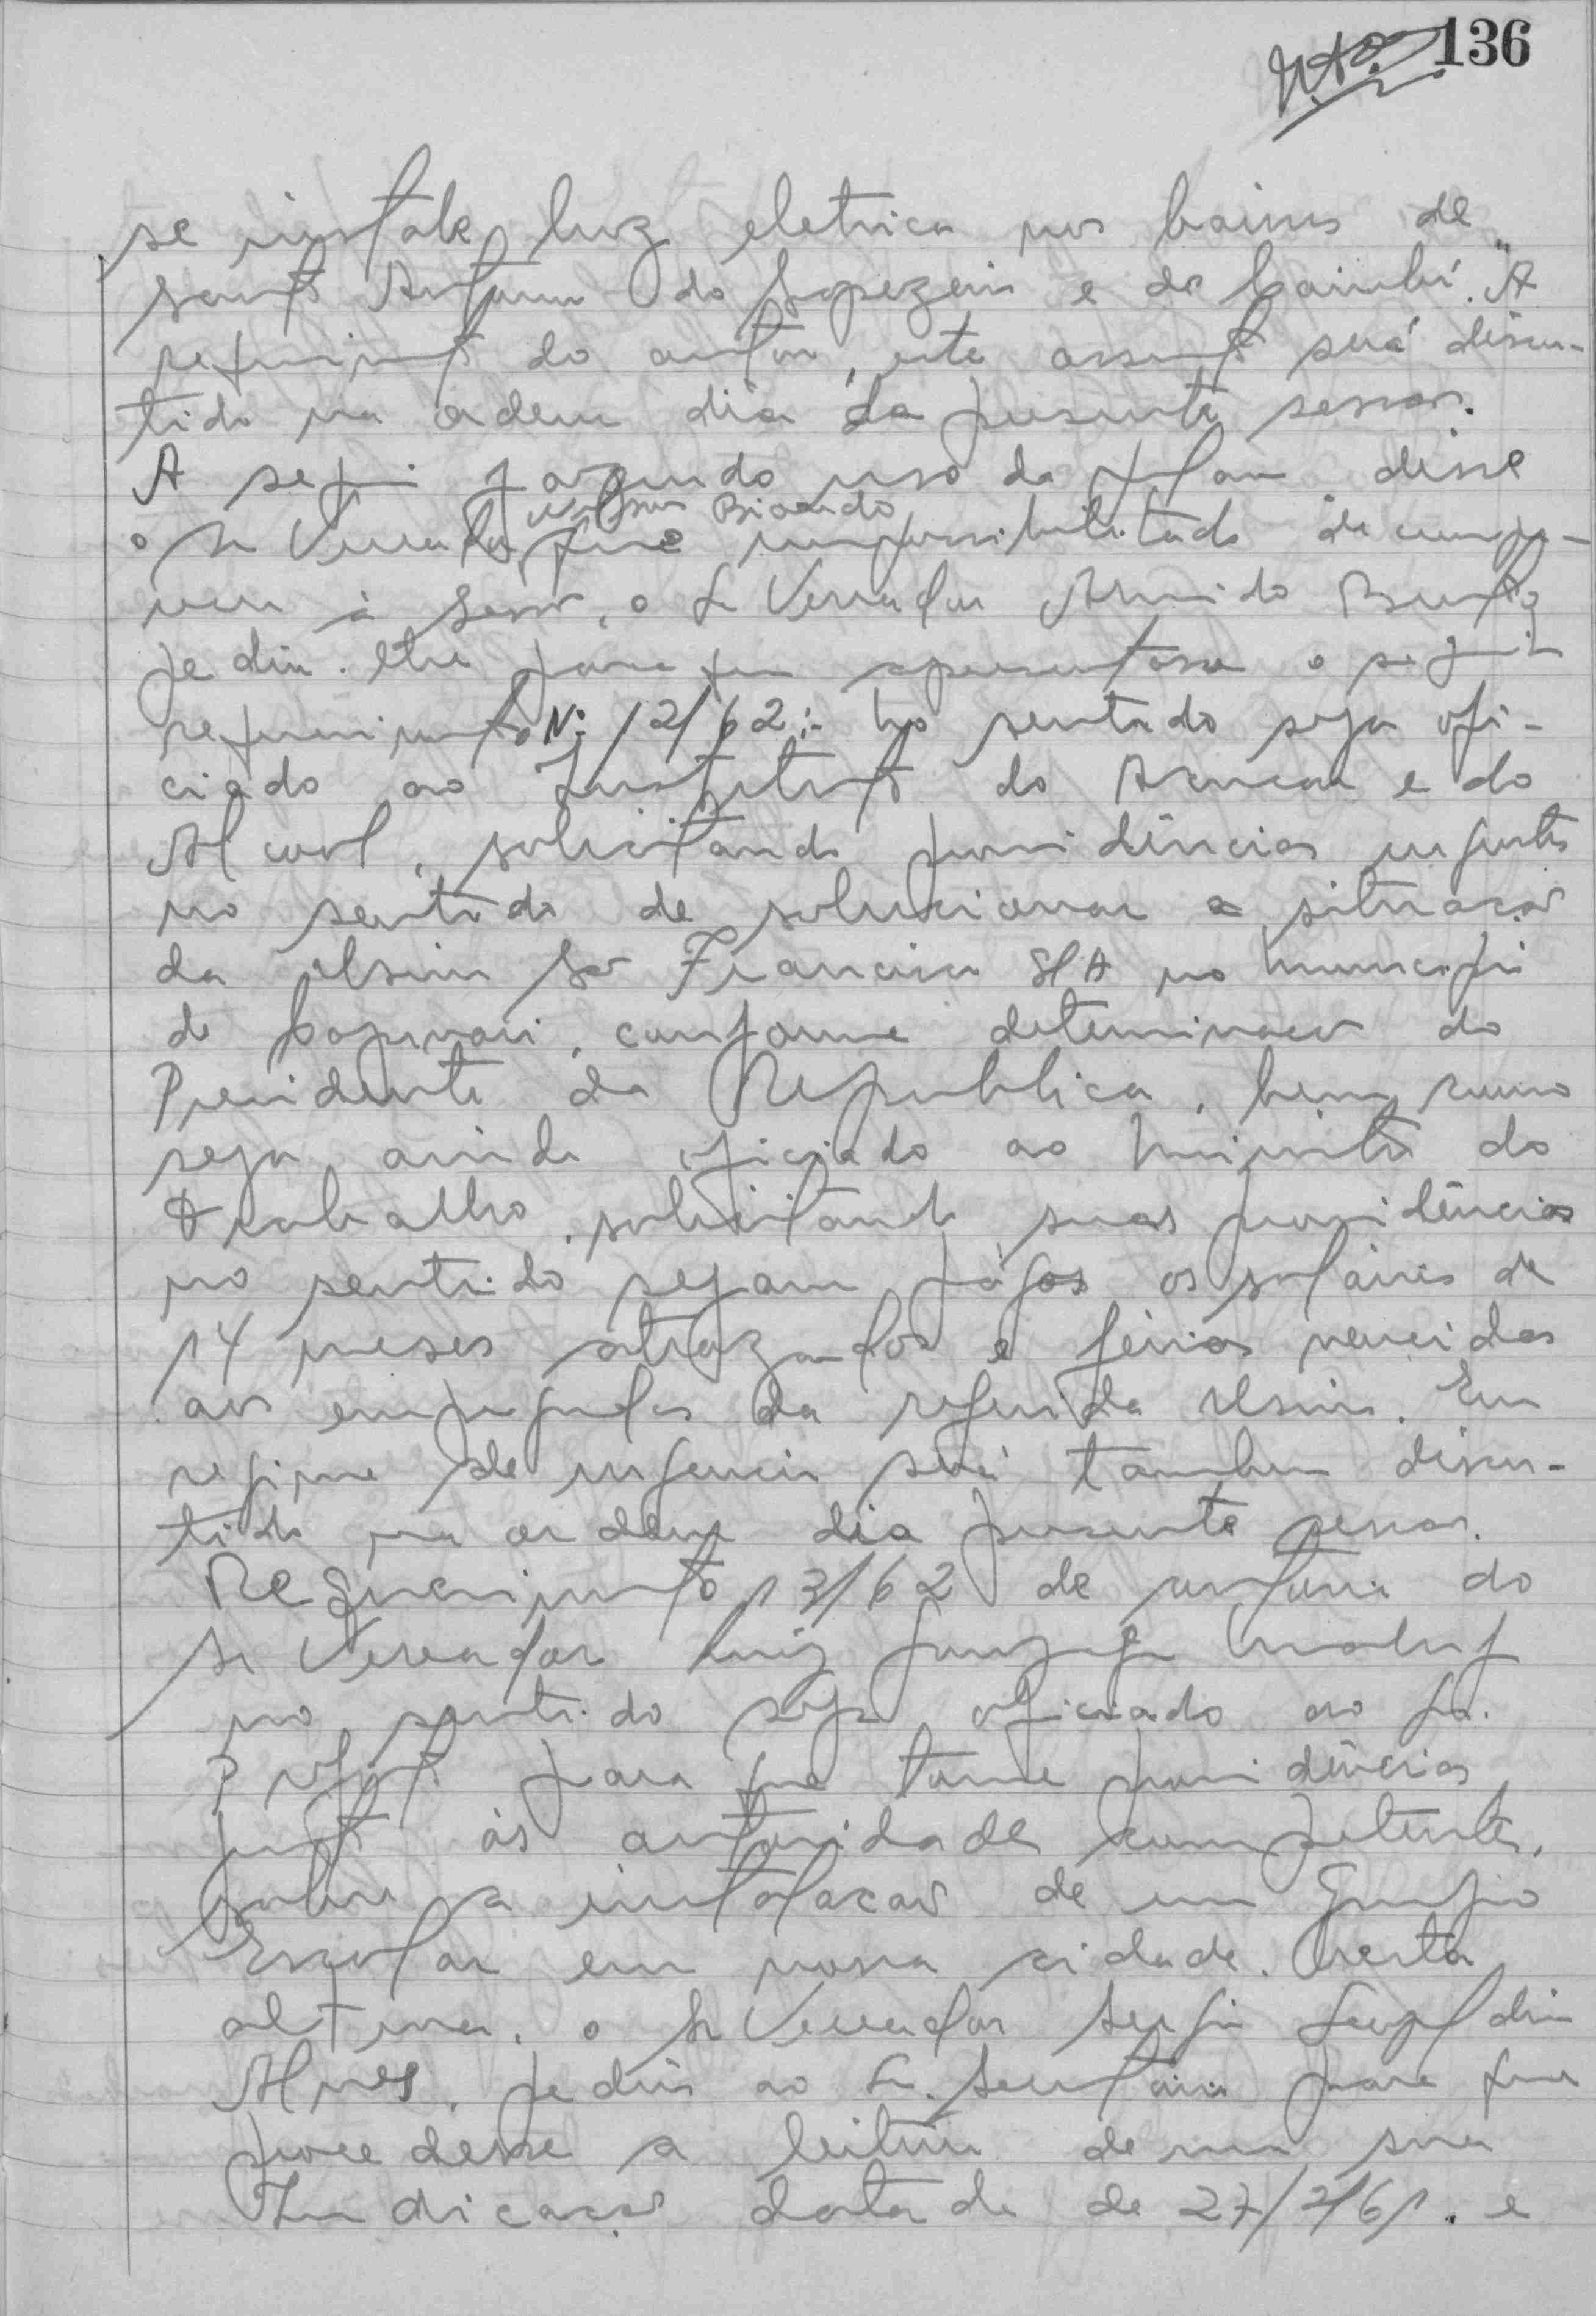 136
se instale luz eletrica nos bairros de
Santo Antonio do Sapezeiro e do Cairubi". A
requerimento do autor, este assunto será discu-
tido na ordem dia da presente sessão.
A seguir fazendo uso da palavra disse
Wilson Biondo
o Sr Vereador que impossibilitado de compa-
recer à Sessão, o Sr Vereador Armindo
pediu-lhe para que apresentasse o seguinte
requerimento Nº 12/62:- No sentido seja ofi-
ciado ao Instituto do Açucar e do
Alcool, solicitando providências urgentes
no sentido de solucionar a situação
da Usina São Francisco S/A no Municipio
de Capivari, conforme determinação do
Presidente da Republica, bem como
seja ainda oficiado ao Ministro do
Trabalho, solicitando suas providências
no sentido sejam págos os salários de
14 meses atrazados e férias vencidas
aos empregados da referida Usina. Em
regime de urgencia será tambem discu-
tido na ordem dia presente sessão.
Requerimento 13/62 de autoria do
Sr Vereador Luiz Gonzaga Maluf
no sentido seja oficiado ao Sr.
Prefeito para que tome providências
junto às autoridades competentes,
sobre a instalação de um Grupo
Escolar em nossa cidade. Nesta
altura, o Sr Vereador Sergio Leopoldino
Alves, pediu ao Sr. Secretário para que
procedesse a leitura de uma sua
Indicação datada de 27/2/61. e